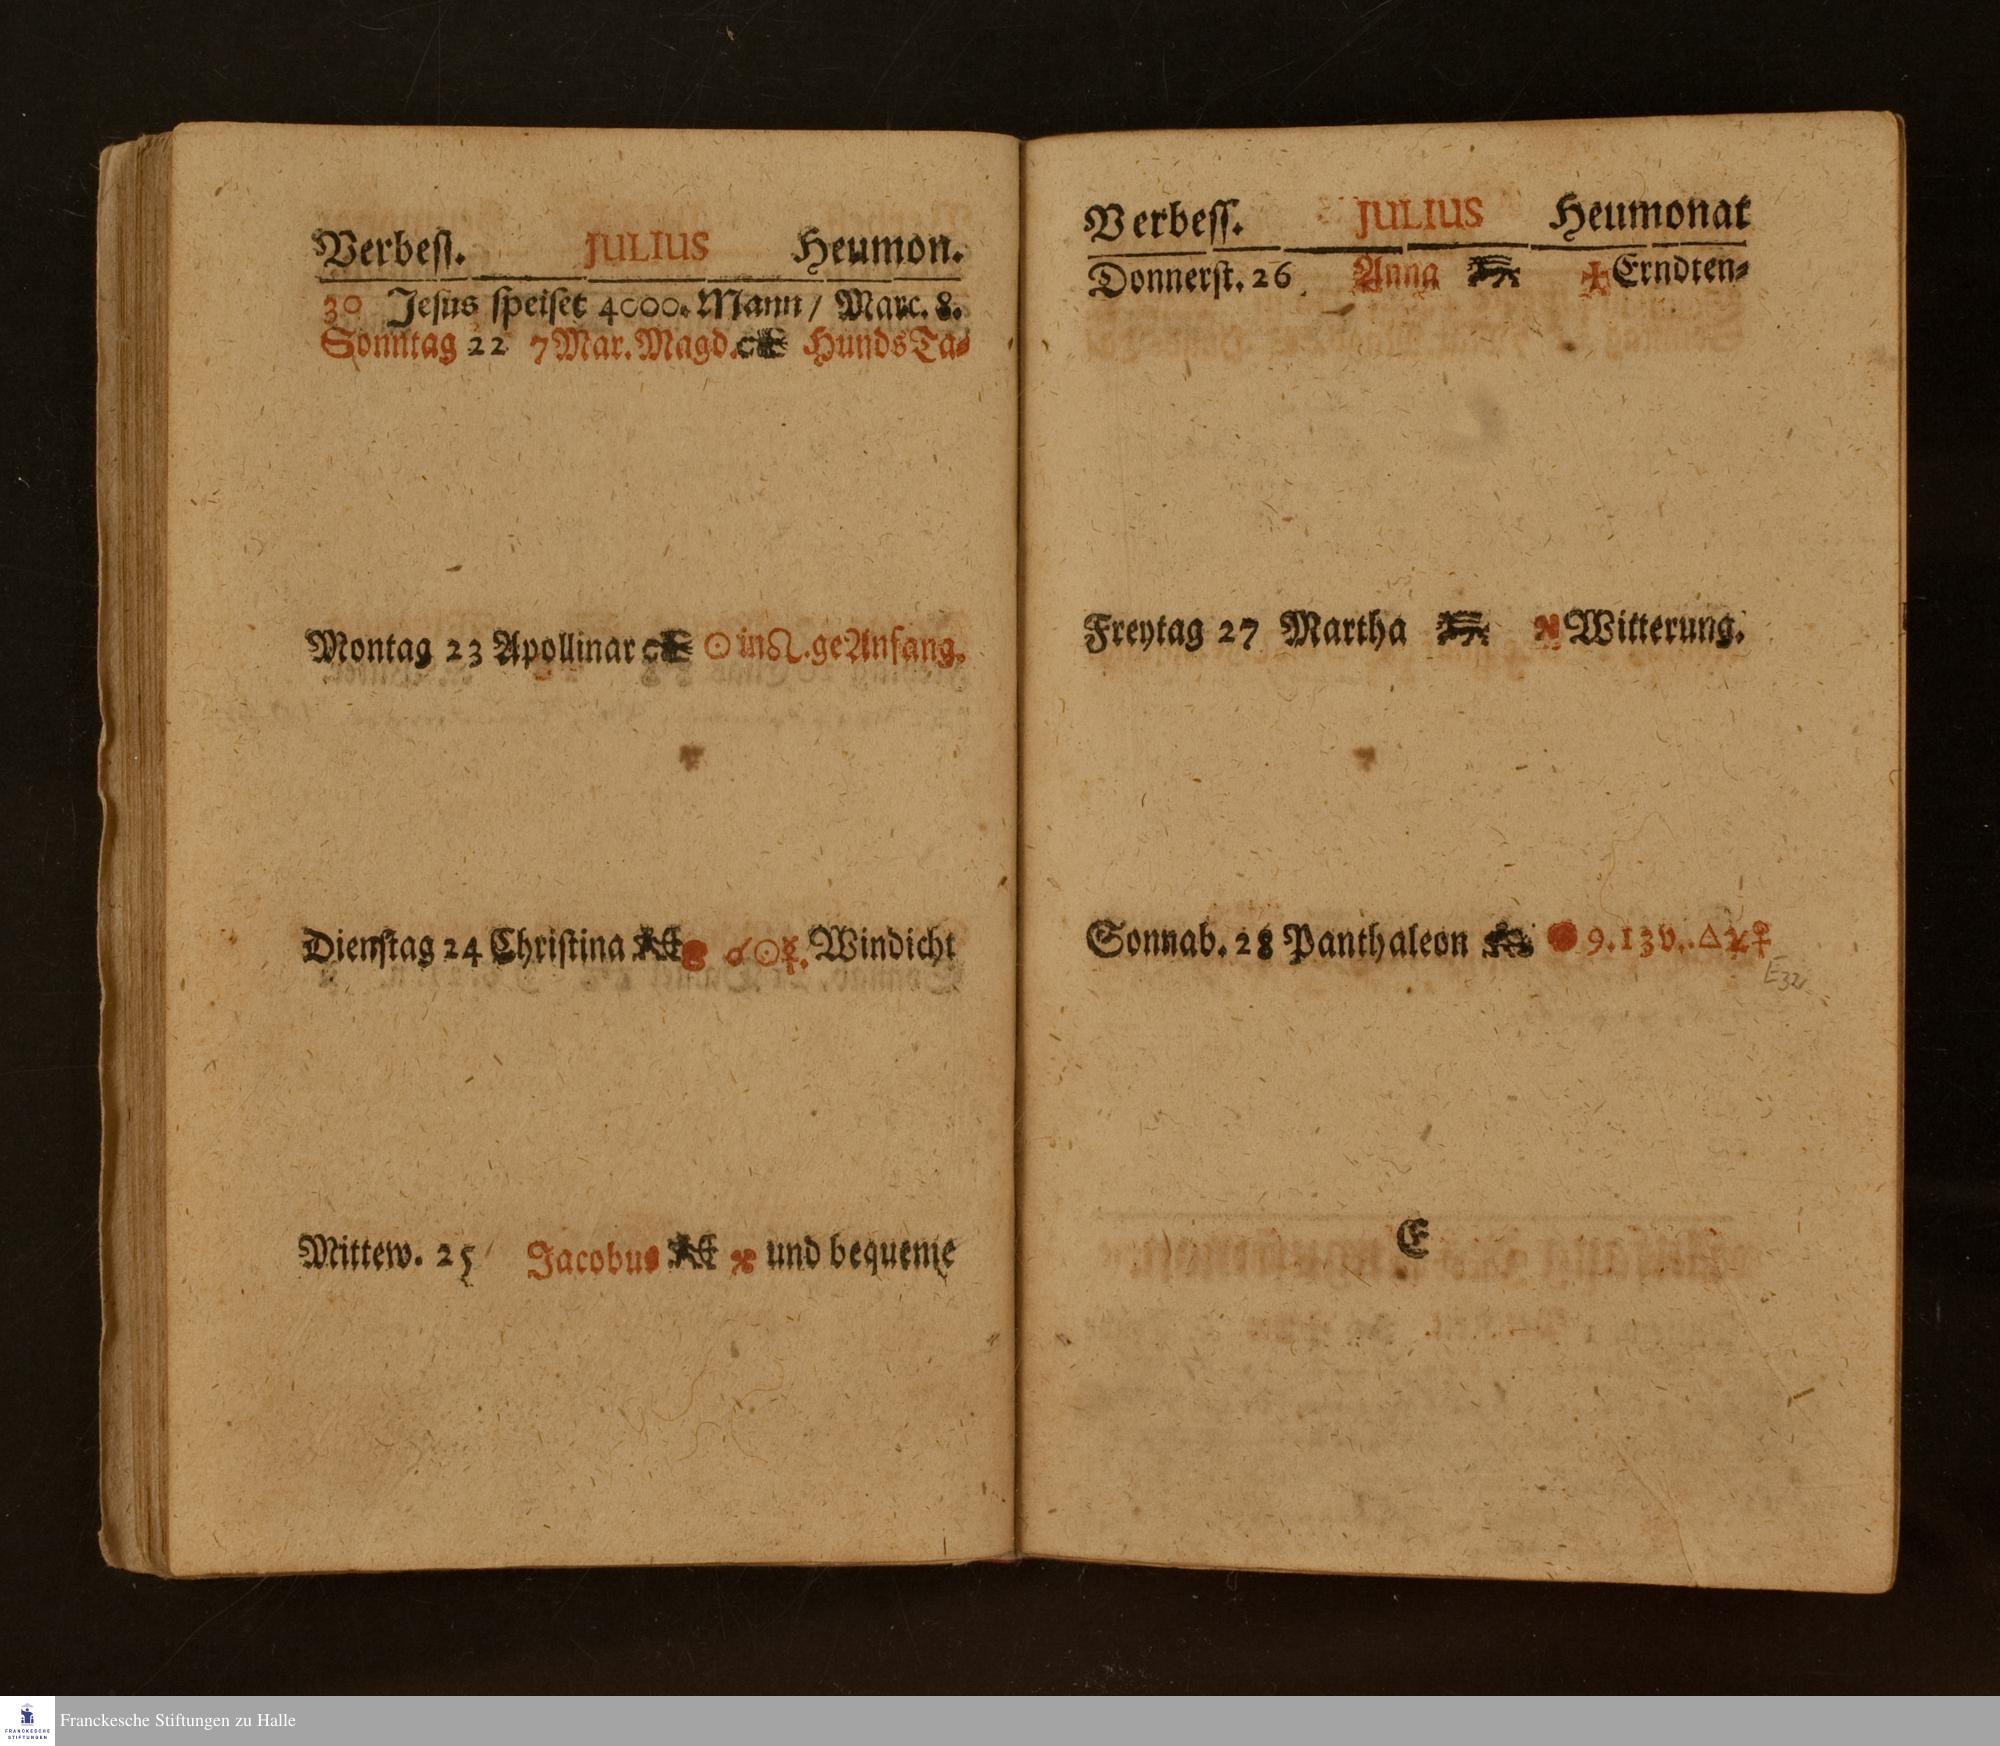 Verbeſſ. JULIUS Heumon.
30 Jeſus ſpeiſet 4000. Mann / Marc. 8.
Sonntag 22 7 Mar. Magd. HundsTa-
Montag 23 Apollinar ☉ in ♌. geAnfang.
Dienſtag 24 Chriſtina ☌ ☉ ☿. Windicht
Mittew. 25 Jacobus und bequeme
Verbeſſ. JULIUS Heumonat
Donnerſt. 26 Anna Erndten-
Freytag 27 Martha Witterung.
Sonnab. 28 Panthaleon 9. 13 v. △ ♃ ♀
E32
E
Franckesche Stiftungen zu Halle
FRANCKESCHE
STIFTUNGEN